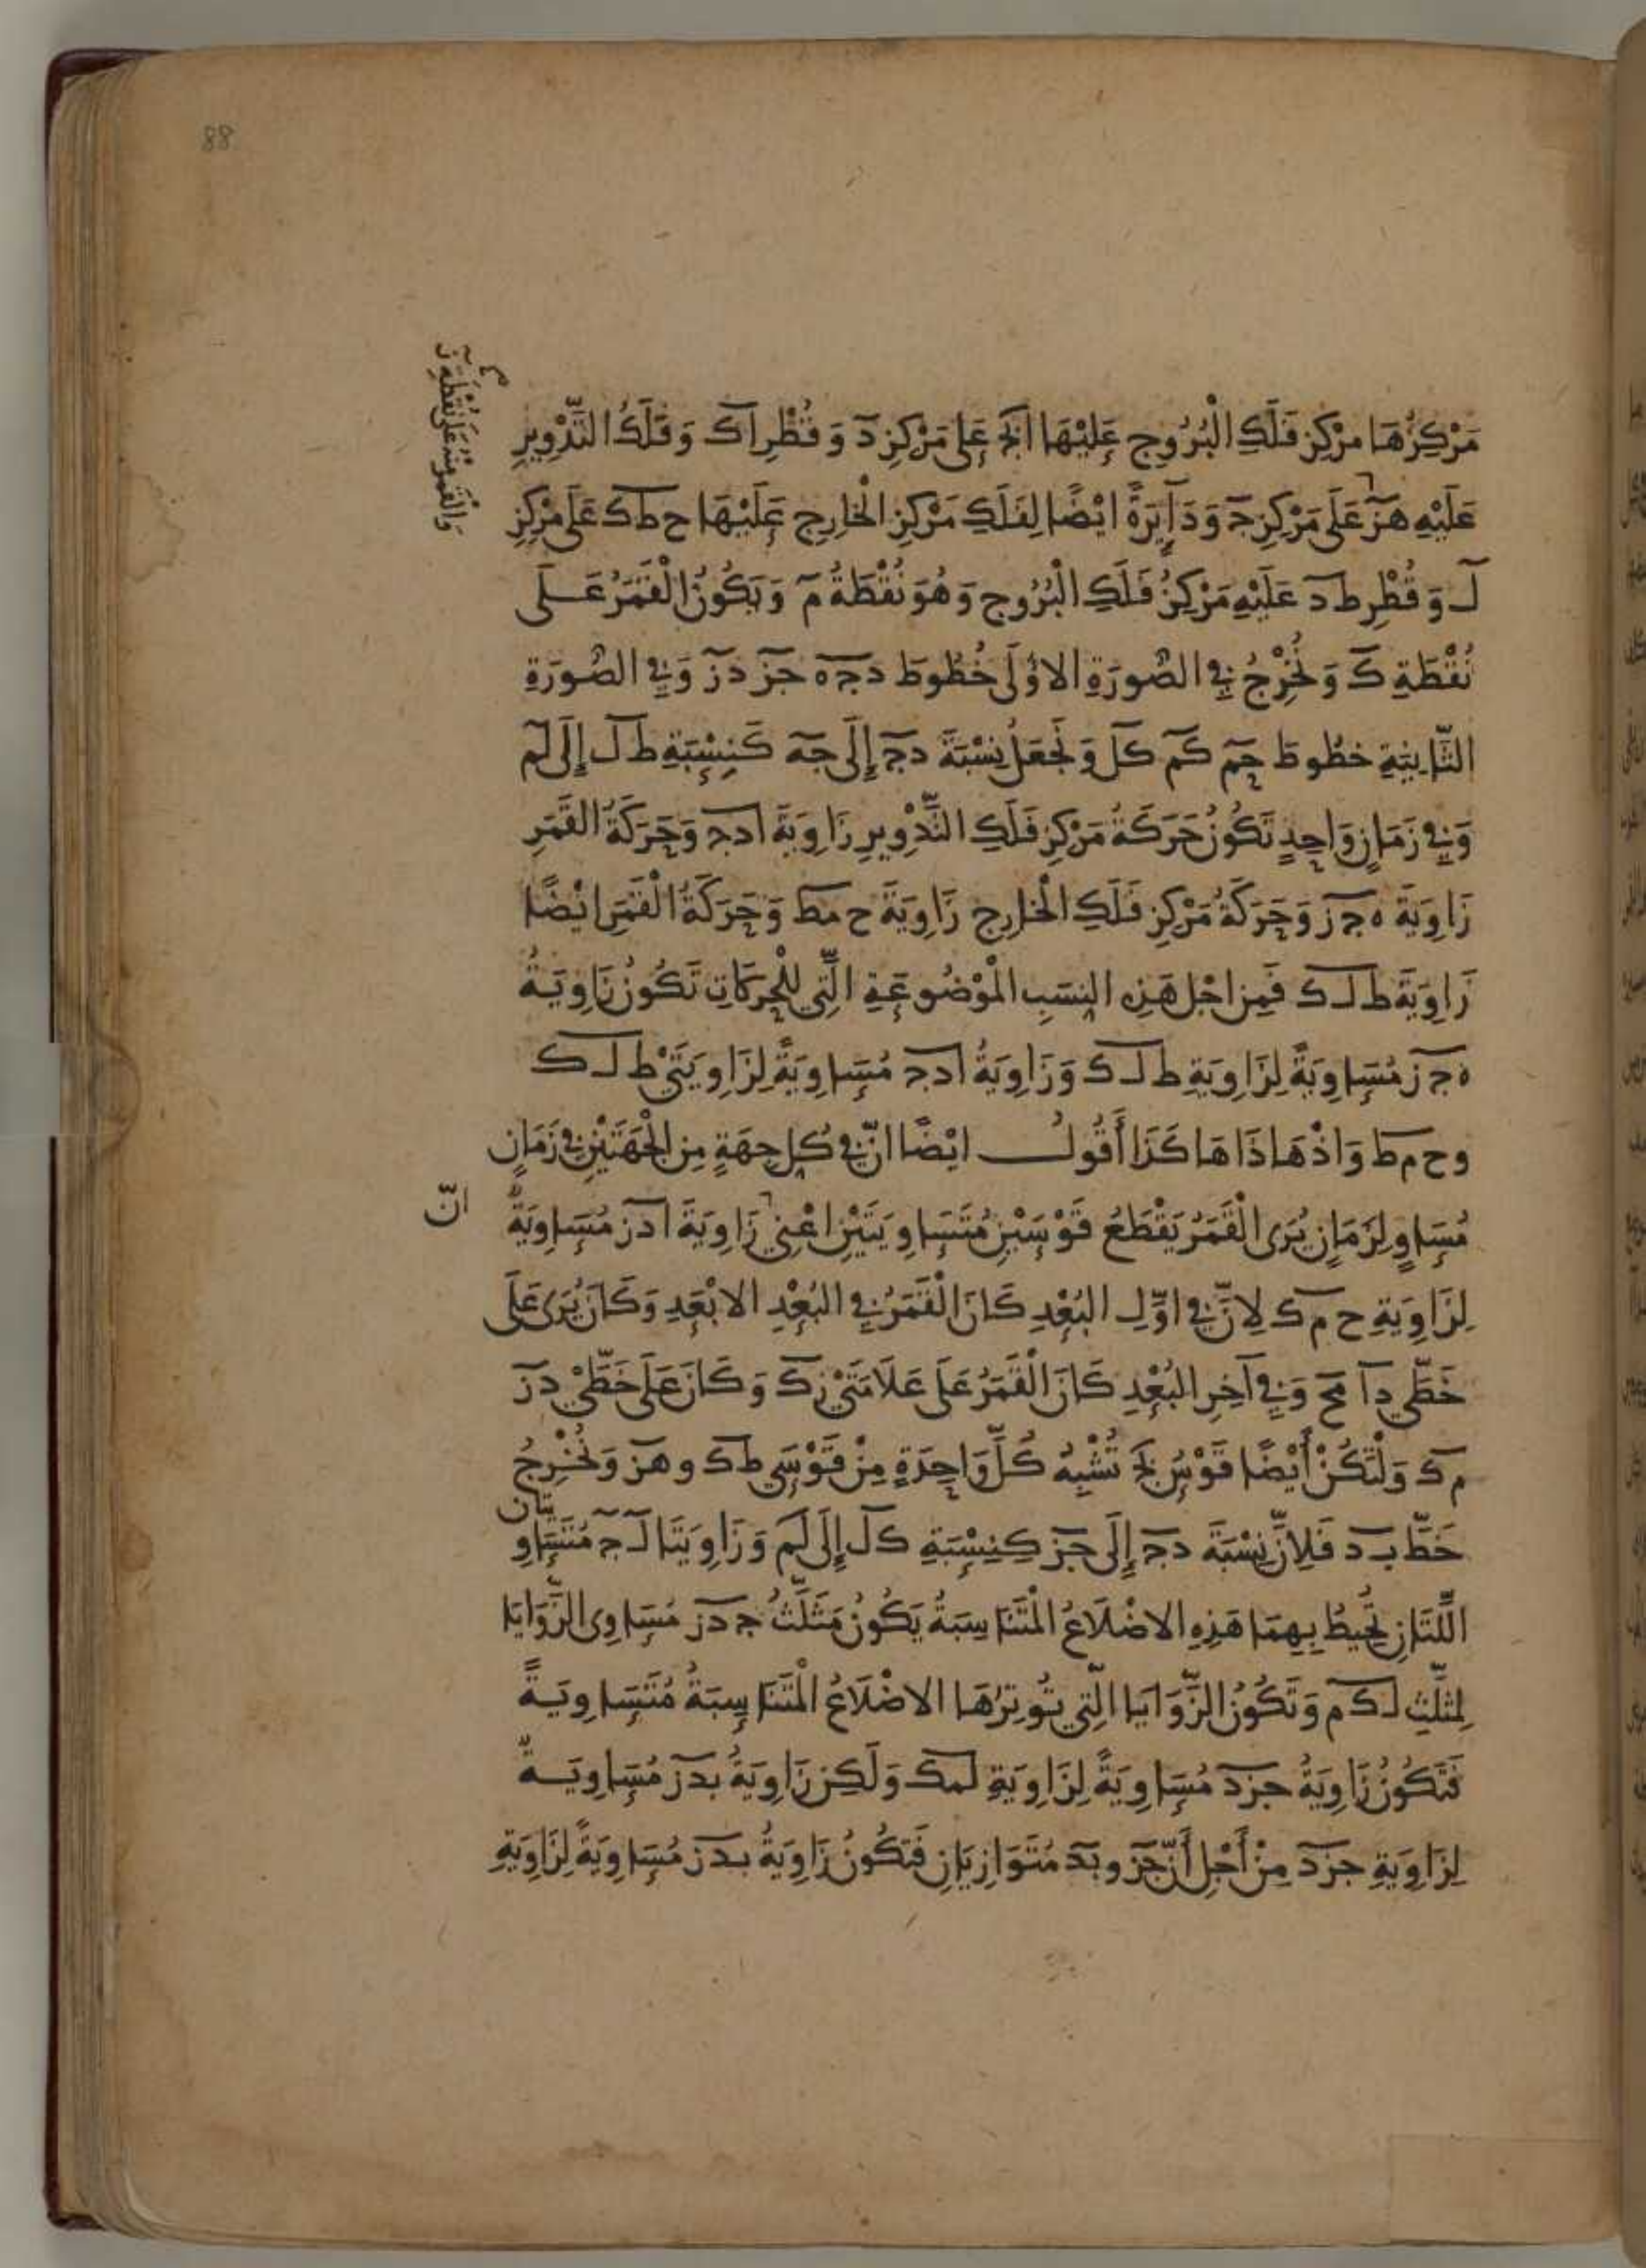 88
والقمر منه على نقطة ز
مَرْكِزُهَا مرْكِز فَلَكِ الْبُرُوجِ عَلَيْهَا ابج عَلَى مَرْكِزِ د وَ قُطْرِ اك وَ فَلَكُ التَّدْوِيرِ
عَلَيْهِ هز عَلَى مَرْكِزِ ج وَ دَآيِرَةً ايْضًا لِفَلَكِ مَرْكِزِ الْخَارِجِ عَلَيْهَا ح ط ك عَلَى مَرْكِزِ
ل وَ قُطْرِ ط د عَلَيْهِ مَرْكِزُ فَلَكِ الْبُرُوجِ وَهُوَ نُقْطَةُ م وَيَكُونُ الْقَمَرُ عَلَى
نُقْطَةِ ك وَ نُخْرِجُ فِي الصُّورَةِ الاُولَى خُطُوطَ د ج ه جز دز وَفِي الصُّورَةِ
الثَّانِيَةِ خطُوطَ حم كم كل وَ نَجْعَلُ نِسْبَةَ دج إِلَى جه كَنِسْبَةِ ط ل إِلَى لم
وَفِي زَمَانٍ وَاحِدٍ تَكُونُ حَرَكَةُ مَرْكِزِ فَلَكِ التَّدْوِيرِ زَاوِيَةَ ادج وَحَرَكَةُ القَمَرِ
زَاوِيَةَ ه ج ز وَحَرَكَةُ مَرْكِزِ فَلَكِ الْخَارِجِ زَاوِيَةَ ح مط وَحَرَكَةُ الْقَمَرِ ايْضًا
زَاوِيَةَ ط ل ك فَمِن اجْلِ هَذِهِ النِسَبِ الْمَوْضُوعَةِ الَّتِي لِلْحَرَكَاتِ تَكُونُ زَاوِيَةُ
ه ج ز مُسَاوِيَةً لِزَاوِيَةِ ط ل ك وَزَاوِيَةُ ادج مُسَاوِيَةً لِزَاوِيَتَيْ ط ل ك
و ح م ط وَاذْ هَاذَا هَاكَذَا أَقُولُ ايْضًا انّ فِي كُلِ جِهَةٍ مِن الْجِهَتَيْنِ فِي زَمَانٍ
مُسَاوٍ لِزَمَانٍ يُرَى الْقَمَرُ يَقْطَعُ قَوْسَيْنِ مُتَسَاوِيَتَيْنِ اعْنِي زَاوِيَةَ ادز مُسَاوِيَةً
انّ
لِزَاوِيَةِ ح م ك لِانَّ فِي اوَّلِ البُعْدِ كَانَ الْقَمَرُ فِي البُعْدِ الابْعَدِ وَكَانَ يُرَى عَلَى
خَطَّي دآ مح وَفِي آخِرِ البُعْدِ كَانَ الْقَمَرُ عَلَى عَلَامَتَيْ زك وَكَانَ عَلَى خَطَّيْ دز
م ك وَلْتَكُنْ أَيْضًا قَوْسُ بج تُشْبِهُ كُلَّ وَاحِدَةٍ مِنْ قَوْسَي طك و هز وَنُخْرِجُ
خَطَّ ب د فَلِانَّ نِسْبَةَ دج إِلَى جز كَنِسْبَةِ كل إِلَى لم وَ زَاوِيَتَا ل ج مُتَسَاوِيَتَان
اللَّتَانِ تُحِيطُ بِهِمَا هَذِهِ الاضْلَاعُ الْمُتَنَاسِبَةُ يَكُونُ مَثَلَّثُ ج د ز مُسَاوِىَ الزَّوَايَا
لِمثَلَّثِ ل ك م وَتَكُونُ الزَّوَايَا الَّتِي تُوتِرُهَا الاضْلَاعُ الْمُتَنَاسِبَةُ مُتَسَاوِيَةً
فَتَكُونُ زَاوِيَةُ جزد مُسَاوِيَةً لِزَاوِيَةِ لمك وَلَكِن زَاوِيَةُ بدز مُسَاوِيَةً
لِزَاوِيَةِ جزد مِنْ أَجْلِ أَنَّ جز و بد مُتَوَازِيَانِ فَتَكُونُ زَاوِيَةُ بدز مُسَاوِيَةً لِزَاوِيَةِ